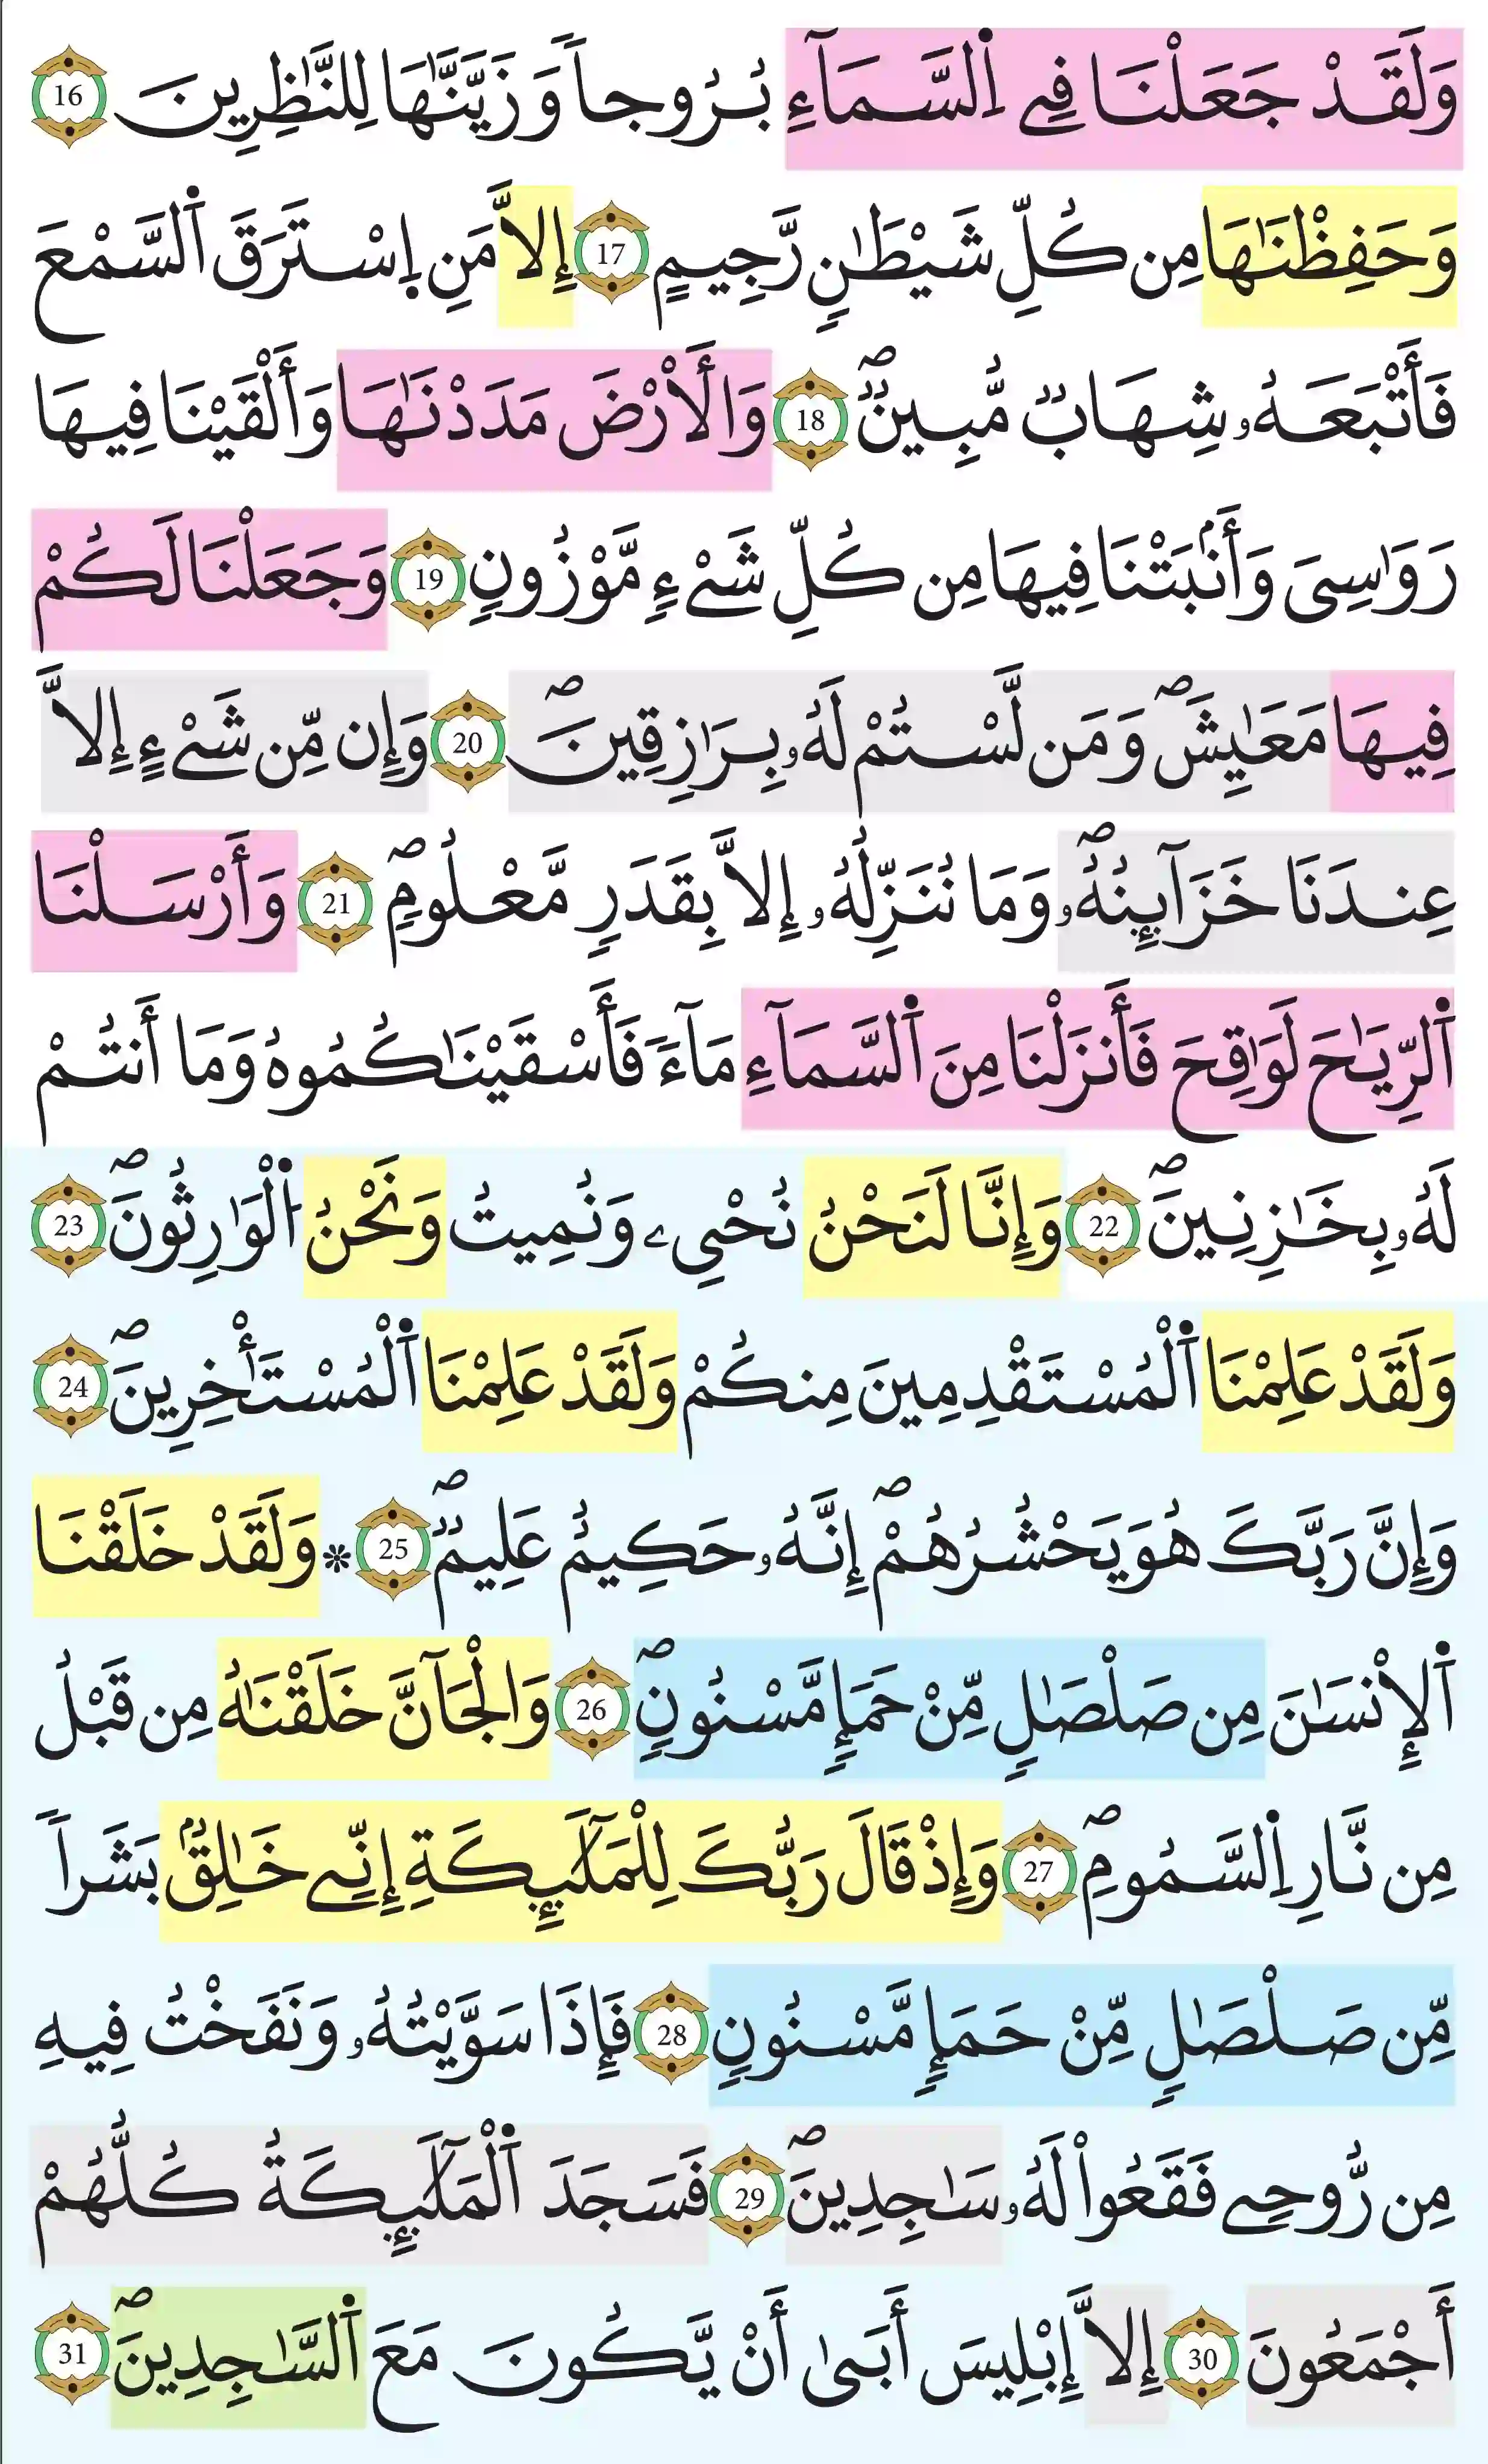 وَلَقَدْ جَعَلْنَا فِے اِ۬لسَّمَآءِ بُرُوجاٗ وَزَيَّنَّٰهَا لِلنَّٰظِرِينَ 16
وَحَفِظْنَٰهَا مِن كُلِّ شَيْطَٰنٖ رَّجِيمٍ 17 إِلَّا مَنِ اِ۪سْتَرَقَ اَ۬لسَّمْعَ
فَأَتْبَعَهُۥ شِهَابٞ مُّبِينٞۖ 18 وَالْأَرْضَ مَدَدْنَٰهَا وَأَلْقَيْنَا فِيهَا
رَوَٰسِيَ وَأَنۢبَتْنَا فِيهَا مِن كُلِّ شَےْءٖ مَّوْزُونٖ 19 وَجَعَلْنَا لَكُمْ
فِيهَا مَعَٰيِشَۖ وَمَن لَّسْتُمْ لَهُۥ بِرَٰزِقِينَۖ 20 وَإِن مِّن شَےْءٍ إِلَّا
عِندَنَا خَزَآئِنُهُۥۖ وَمَا نُنَزِّلُهُۥ إِلَّا بِقَدَرٖ مَّعْلُومٖۖ 21 وَأَرْسَلْنَا
اَ۬لرِّيَٰحَ لَوَٰقِحَ فَأَنزَلْنَا مِنَ اَ۬لسَّمَآءِ مَآءٗ فَأَسْقَيْنَٰكُمُوهُ وَمَا أَنتُمْ
لَهُۥ بِخَٰزِنِينَۖ 22 وَإِنَّا لَنَحْنُ نُحْيِۦ وَنُمِيتُ وَنَحْنُ اُ۬لْوَٰرِثُونَۖ 23
وَلَقَدْ عَلِمْنَا اَ۬لْمُسْتَقْدِمِينَ مِنكُمْ وَلَقَدْ عَلِمْنَا اَ۬لْمُسْتَـْٔخِرِينَۖ 24
وَإِنَّ رَبَّكَ هُوَ يَحْشُرُهُمْۖ إِنَّهُۥ حَكِيمٌ عَلِيمٞۖ 25 * وَلَقَدْ خَلَقْنَا
اَ۬لْإِنسَٰنَ مِن صَلْصَٰلٖ مِّنْ حَمَإٖ مَّسْنُونٖۖ 26 وَالْجَآنَّ خَلَقْنَٰهُ مِن قَبْلُ
مِن نَّارِ اِ۬لسَّمُومِۖ 27 وَإِذْ قَالَ رَبُّكَ لِلْمَلَٰٓئِكَةِ إِنِّے خَٰلِقُۢ بَشَراٗ
مِّن صَلْصَٰلٖ مِّنْ حَمَإٖ مَّسْنُونٖ 28 فَإِذَا سَوَّيْتُهُۥ وَنَفَخْتُ فِيهِ
مِن رُّوحِے فَقَعُواْ لَهُۥ سَٰجِدِينَۖ 29 فَسَجَدَ اَ۬لْمَلَٰٓئِكَةُ كُلُّهُمْ
أَجْمَعُونَ 30 إِلَّا إِبْلِيسَ أَبَىٰ أَنْ يَّكُونَ مَعَ اَ۬لسَّٰجِدِينَۖ 31